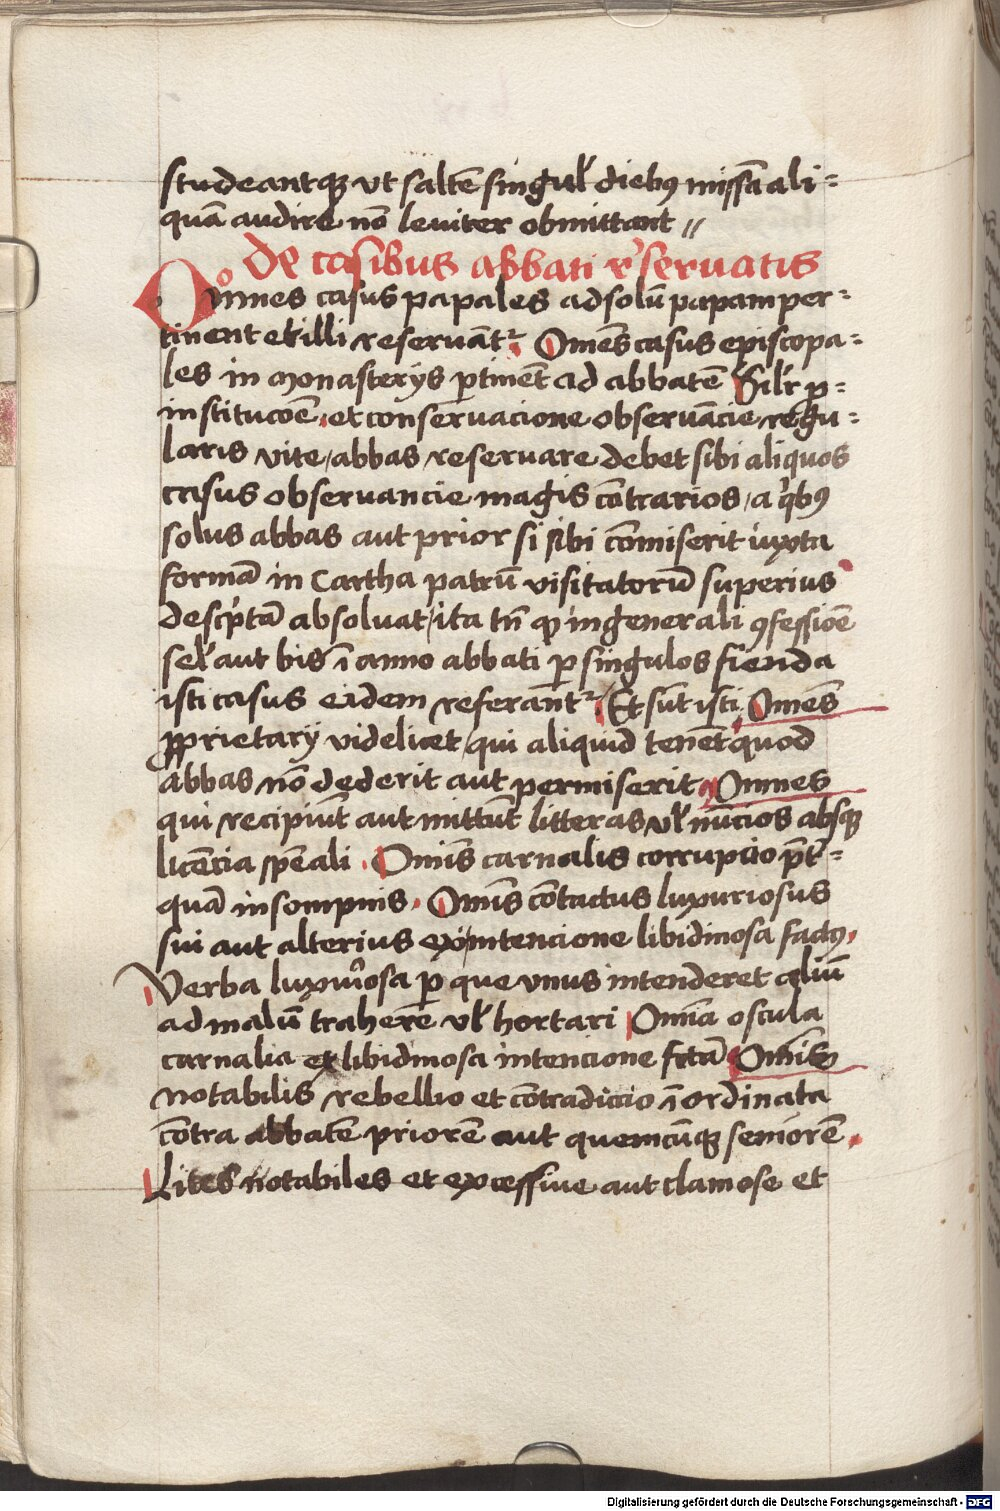 studeantqꝫ vt saltē singul' dieb9 missā ali=
quā audire nō leuiter obmittant //
De casibus abbati r'seruatis
Omnes casus papales ad solū papam per=
tinent et illi reseruāt᷑ Omēs casus episcopa=
les in monasterijs ꝑtinēt ad abbatē Sil'r ꝓ=
institucōe et conseruacione obseruācie regu=
laris vite / abbas reseruare debet sibi aliquos
casus obseruancie magis cōtrarios / a qͥb9
solus abbas aut prior si sibi cōmiserit iuxta
formā in Cartha patrū visitatorū superius
descͥptā absoluat / ita tn̄ ꝙ in generali ꝯfessiōe
sel' aut bis ī anno abbati ꝑ singulos fienda
isti casus eidem referant᷑ / Et sūt isti Omēs
ꝓprietarij videlicet / qui aliquid tenēt quod
abbas nō dederit aut permiserit Omnes
qui recipiūt aut mittūt litteras vl' nūcios absqꝫ
licēcia spēali . Omīs carnalis corrupcio p̄t=
quā in sompnis . Omīs cōtactus luxuriosus
sui aut alterius ex intencione libidinosa fact9
Verba luxuͥosa ꝑ que vnus intenderet aliū
ad malū trahere vl' hortari Omīa oscula
carnalia et libidinosa intencione fctā Omīs
notabilis rebellio et cōtradiccio īordinata
cōtra abbatē priorē aut quemcūqꝫ seniorē .
Lites notabiles et excessiue aut clamose et
Digitalisierung gefördert durch die Deutsche Forschungsgemeinschaft - DFG